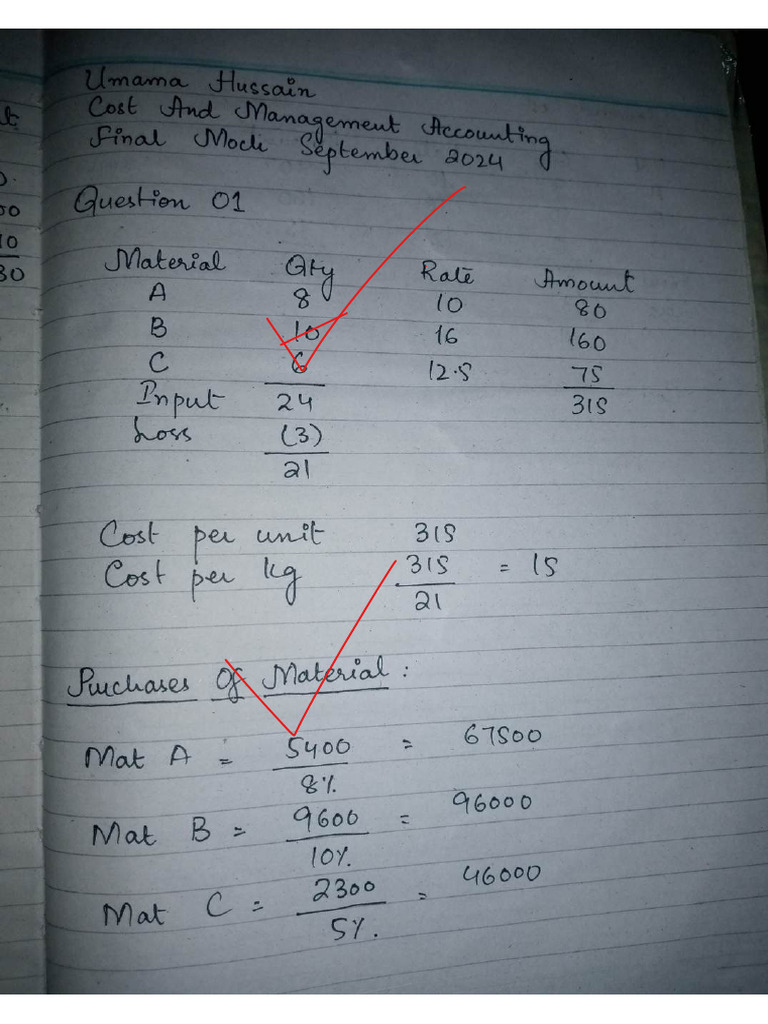 Umama Hussain
Cost And Management Accounting
Final Mock September 2024
Question 01
Material Qty Rate Amount
A 8 10 80
B 10 16 160
C 6 12.5 75
Input 24 315
Loss (3)
21
Cost per unit 315
Cost per kg 315/21 = 15
Purchases Of Material :
Mat A = 5400/8% = 67500
Mat B = 9600/10% = 96000
Mat C = 2300/5% = 46000